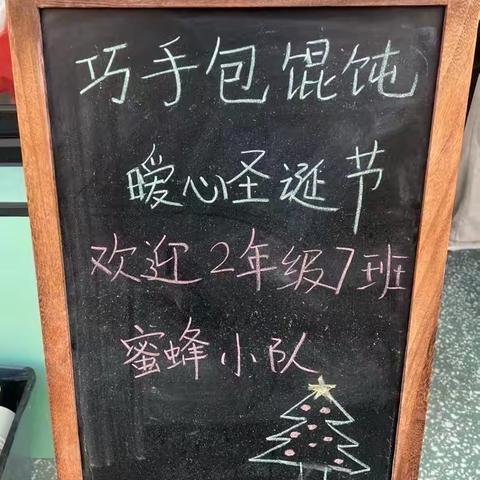 巧手包馄饨
暖心圣诞节
欢迎2年级7班
蜜蜂小队